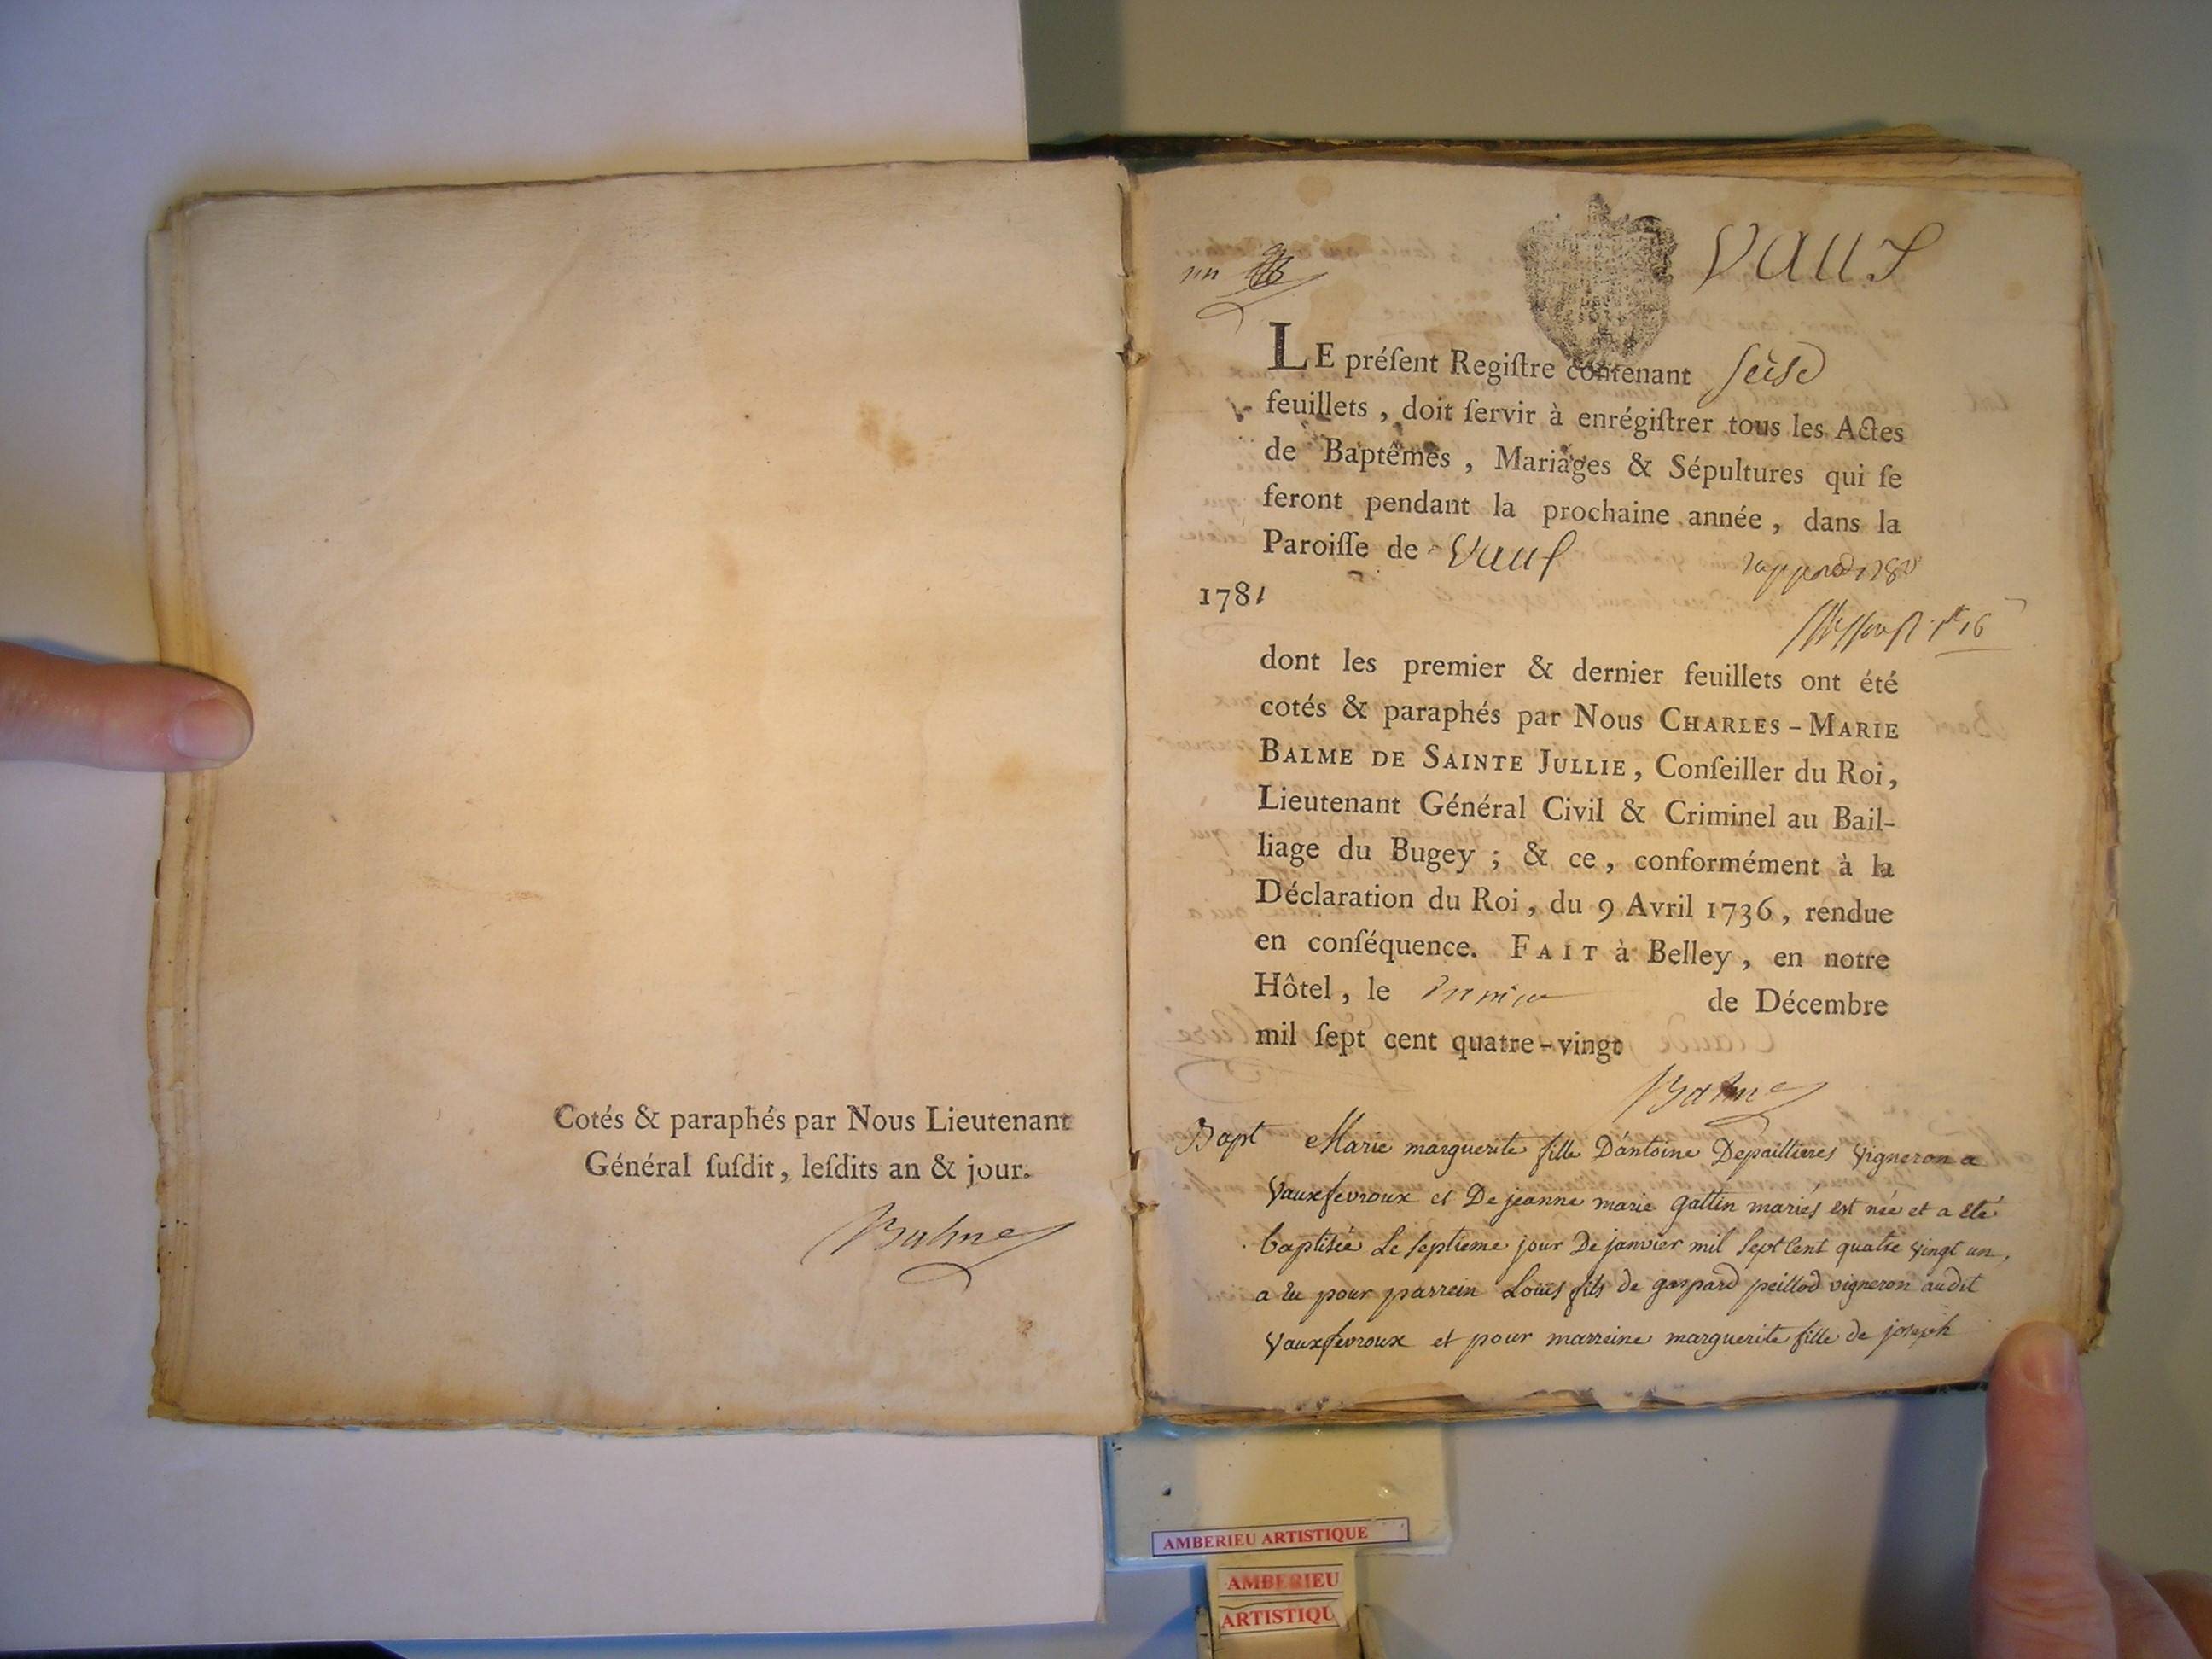 Cotés & paraphés par Nous Lieutenant
Général ſuſdit, leſdits an & jour.
Balme
un
Vaux
LE préſent Regiſtre contenant ſeise
feuillets, doit ſervir à enrégiſtrer tous les Actes
de Baptêmes, Mariages & Sépultures qui ſe
feront pendant la prochaine année, dans la
Paroiſſe de Vaux
1781
dont les premier & dernier feuillets ont été
cotés & paraphés par Nous CHARLES-MARIE
BALME DE SAINTE JULLIE, Conſeiller du Roi,
Lieutenant Général Civil & Criminel au Bail-
liage du Bugey ; & ce, conformément à la
Déclaration du Roi, du 9 Avril 1736, rendue
en conſéquence. FAIT à Belley, en notre
Hôtel, le de Décembre
mil ſept cent quatre-vingt
Balme
Bapt Marie marguerite fille D'antoine Depaillieres vigneron a
Vauxfevroux et De jeanne marie gallin mariés est née et a eté
baptisée Le septieme jour De janvier mil sept cent quatre vingt un,
a eu pour parrein Loüis fils de gaspard peillod vigneron audit
Vauxfevroux et pour marreine marguerite fille de joseph
AMBERIEU ARTISTIQUE
AMBERIEU
ARTISTIQU